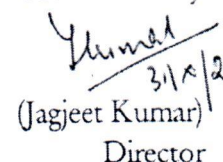 31/x/2
(Jagjeet Kumar)
Director